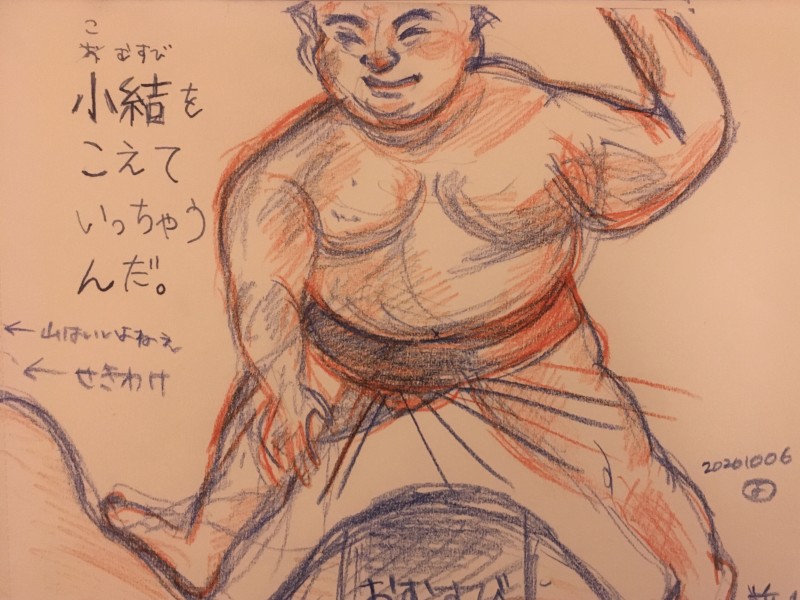 こ
おむすび
小結を
こえて
いっちゃう
んだ。
← 山はいいよねぇ
← せきわけ
20201006
おむすび